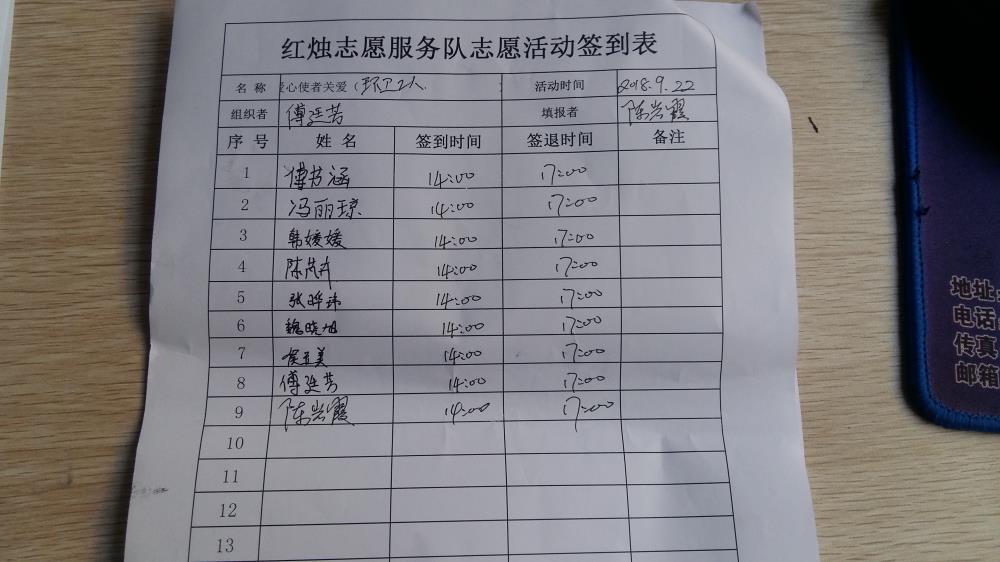 红烛志愿服务队志愿活动签到表
名 称 爱心使者关爱(环卫工人 活动时间 2018.9.22
组织者 傅廷芳 填报者 陈岩霞
序 号 姓 名 签到时间 签退时间 备注
1 傅芳涵 14:00 17:00
2 冯丽琼 14:00 17:00
3 韩媛媛 14:00 17:00
4 14:00 17:00
5 14:00 17:00
6 魏晓旭 14:00 17:00
7 14:00 17:00
8 傅廷芳 14:00 17:00
9 陈岩霞 14:00 17:00
10
11
12
13
地址
电话
传真
邮箱